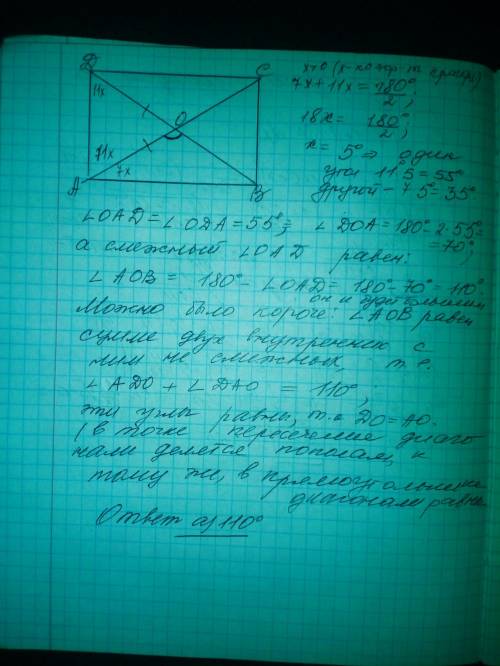 D
C
11x
O
71x
7x
A
B
x>0 (x - коэф-т
7x+11x = 180°/2;
18x = 180°/2;
x = 5° => один
угол 11·5 = 55°
другой - 7·5° = 35°
∠OAD = ∠ODA = 55°; ∠DOA = 180° - 2·55° = 70°;
а смежный ∠OAD равен:
∠AOB = 180° - ∠OAD = 180° - 70° = 110°
он и будет
Можно было короче: ∠AOB равен
сумме двух внутренних с
ним не смежных, т.е.
∠ADO + ∠DAO = 110°,
эти углы равны, т.к. DO = AO.
(в точке пересечения диаго
нали делятся пополам, к
тому же, в прямоугольнике
диагонали равны
Ответ а) 110°